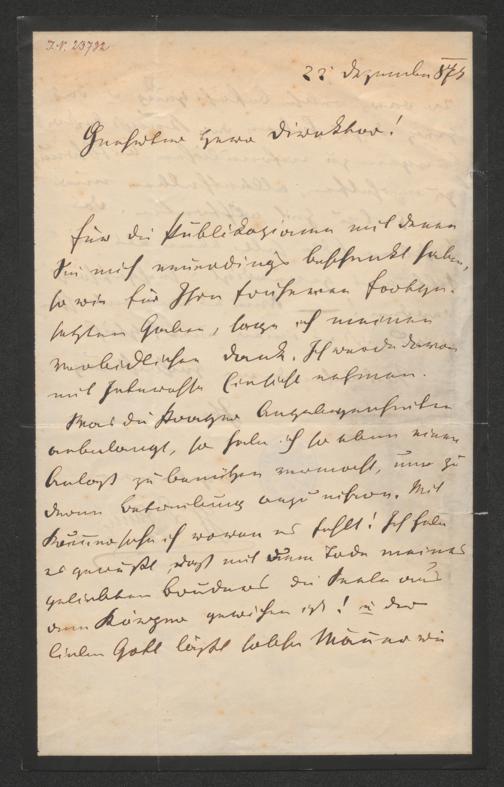 I.N. 23792
22 Dezember 875
Geehrter Herr Direktor!
Für die Publikazionen mit denen
Sie mich neuerdings beschenkt haben,
so wie für Ihre früheren fortge-
setzten Gaben, sage ich meinen
verbindlichen Dank. Ich werde davon
mit Interesse Einsicht nehmen.
Was die Prager Angelegenheiten
anbelangt, so habe ich so eben einen
Anlaß zu benützen gesucht, um zu
deren Betreibung anzueifern. Mit
Kummer sehe ich woran es fehlt! Ich habe
es gewußt, daß mit dem Tode meines
geliebten Bruders die Seele aus
dem Körper gewichen ist! u der
liebe Gott läßt solche Männer wie